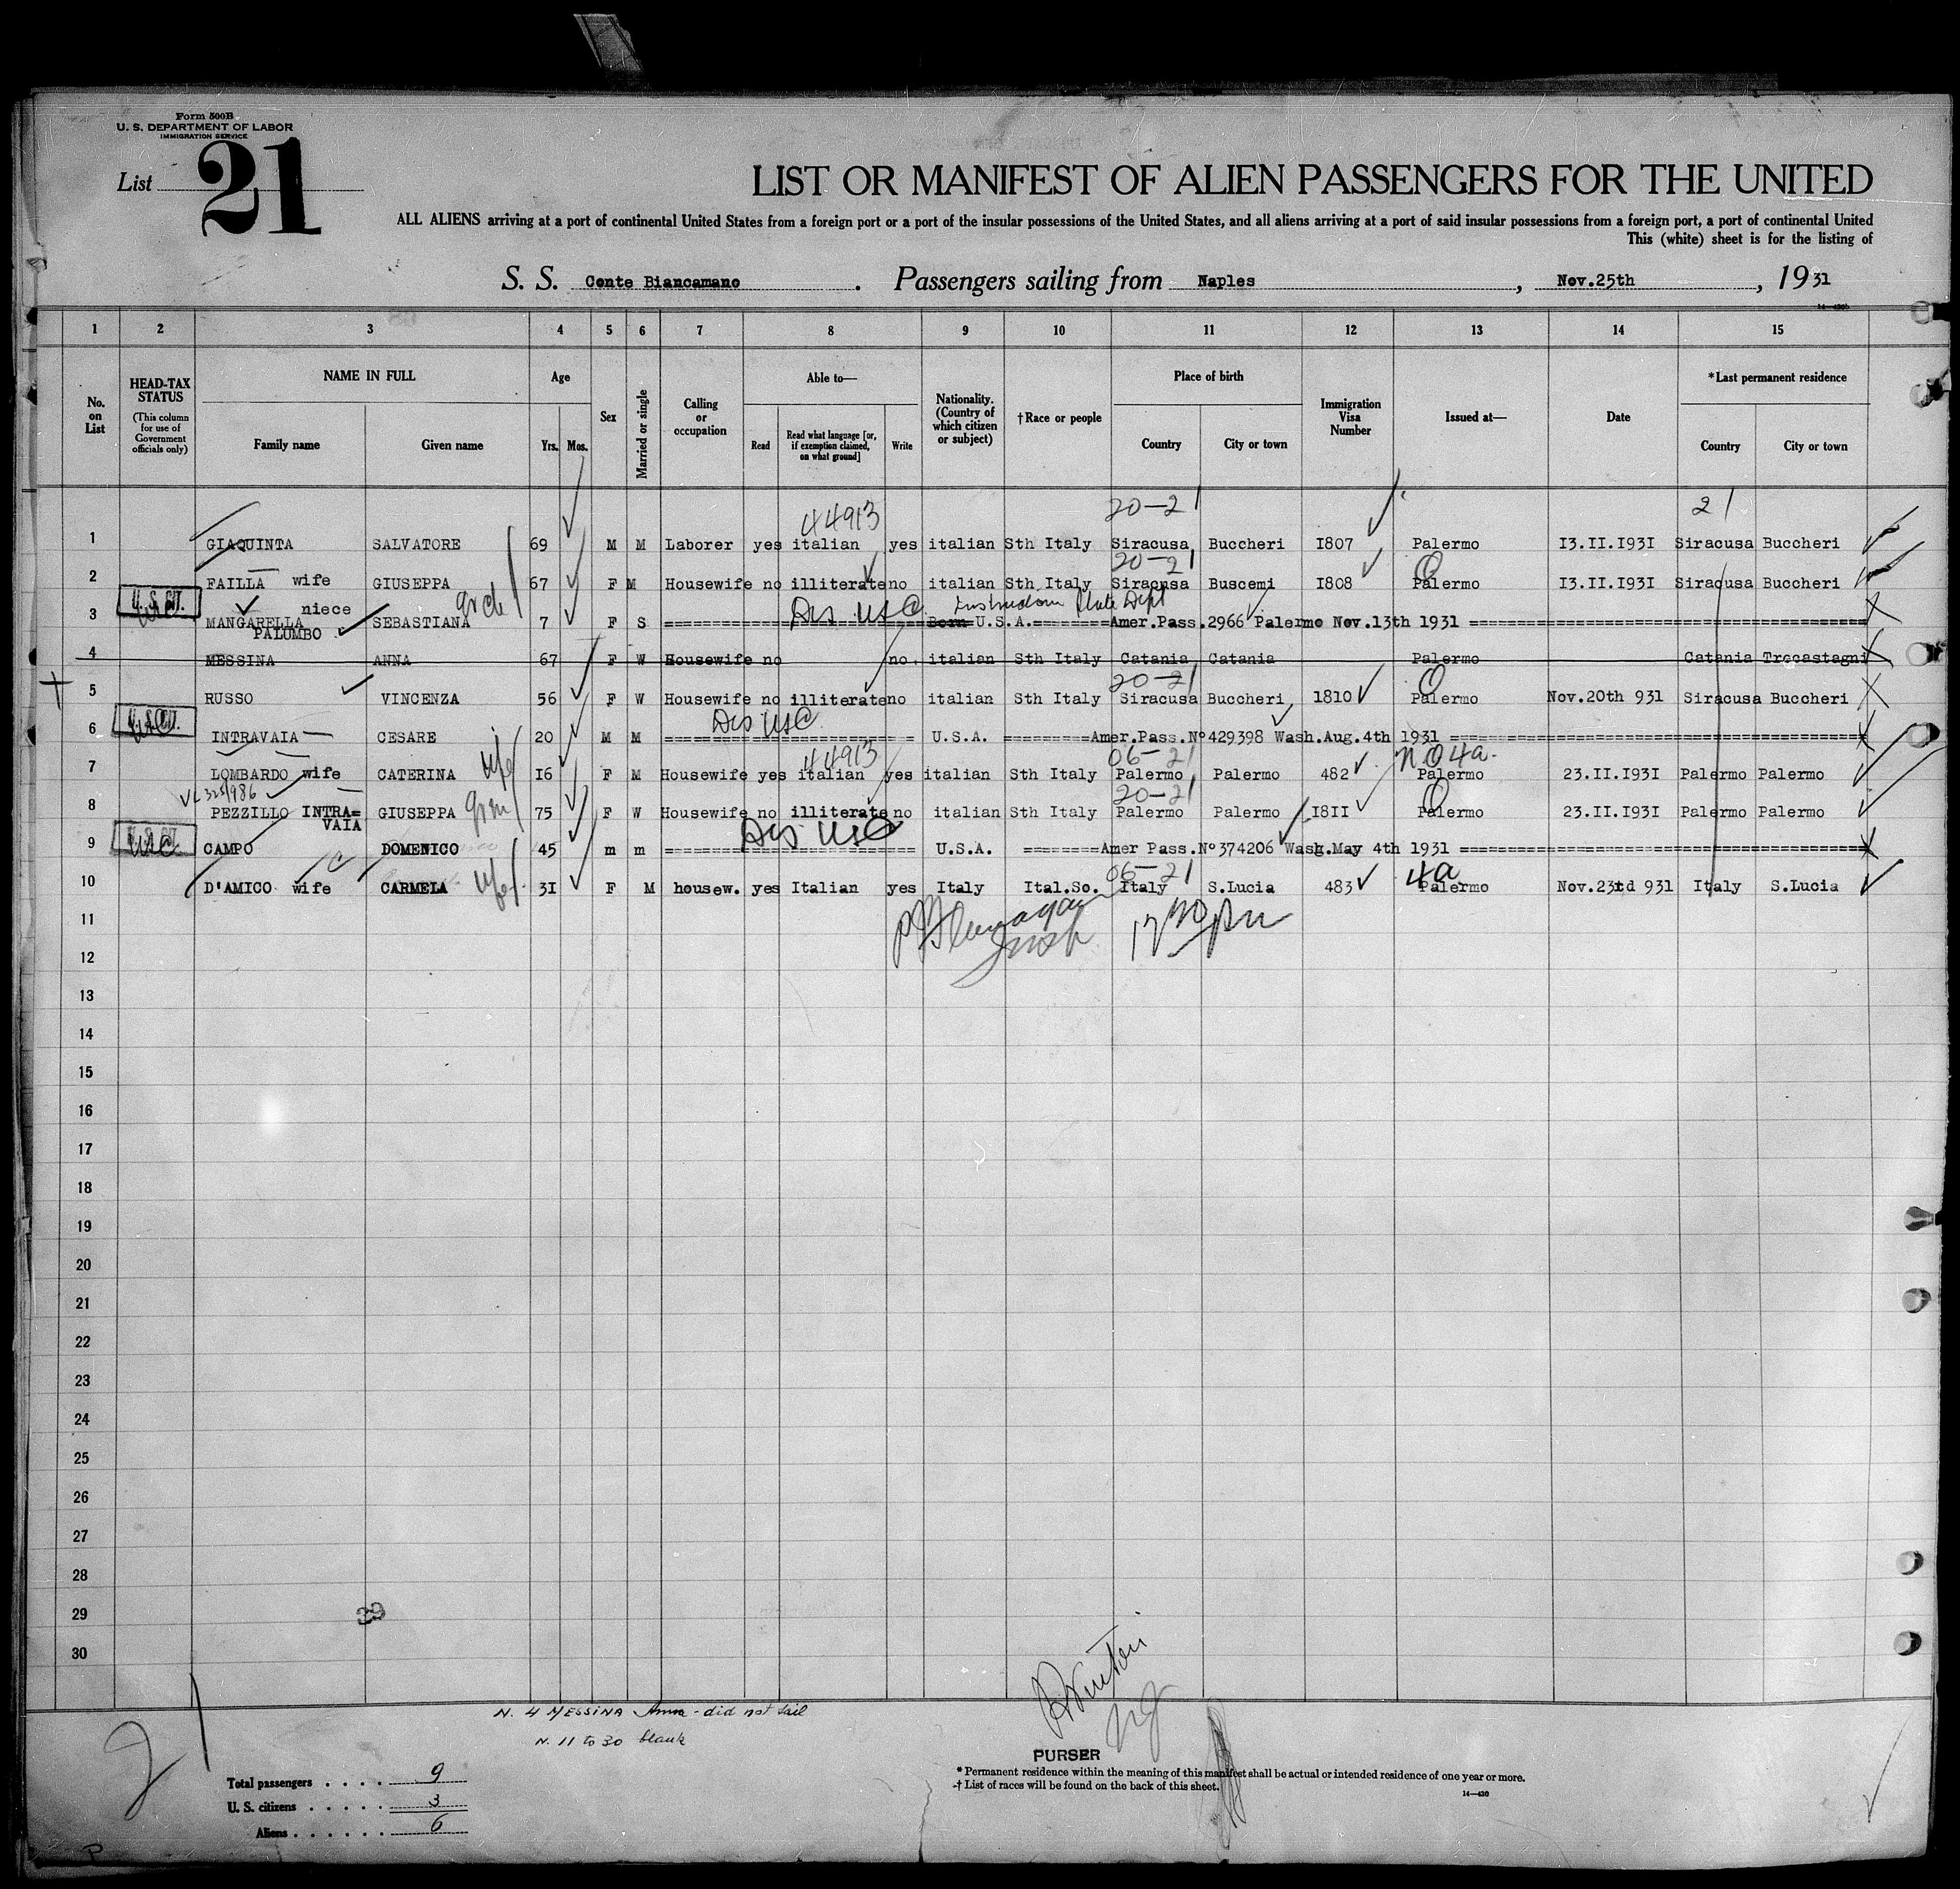 Form 500B
U. S. DEPARTMENT OF LABOR
IMMIGRATION SERVICE
List 21
LIST OR MANIFEST OF ALIEN PASSENGERS FOR THE UNITED
ALL ALIENS arriving at a port of continental United States from a foreign port or a port of the insular possessions of the United States, and all aliens arriving at a port of said insular possessions from a foreign port, a port of continental United
This (white) sheet is for the listing of
S. S. Conte Biancamano . Passengers sailing from Naples , Nov.25th , 1931
14—430b
1 2 3 4 5 6 7 8 9 10 11 12 13 14 15
No. on List
HEAD-TAX STATUS
(This column for use of Government officials only)
NAME IN FULL
Family name Given name
Age
Yrs. Mos.
Sex
Married or single
Calling or occupation
Able to—
Read Read what language [or, if exemption claimed, on what ground] Write
Nationality. (Country of which citizen or subject)
†Race or people
Place of birth
Country City or town
Immigration Visa Number
Issued at—
Date
*Last permanent residence
Country City or town
44913 20-21 21
1 GIAQUINTA SALVATORE 69 M M Laborer yes italian yes italian Sth Italy Siracusa Buccheri I807 Palermo I3.II.I93I Siracusa Buccheri
20-21
2 FAILLA wife GIUSEPPA 67 F M Housewife no illiterate no italian Sth Italy Siracusa Buscemi I808 Palermo I3.II.I93I Siracusa Buccheri
U. S. CIT. niece grch Dis USC State Dept
3 MANGARELLA PALUMBO SEBASTIANA 7 F S Born U.S.A. Amer.Pass.2966 Palermo Nov.13th 1931
4 MESSINA ANNA 67 F W Housewife no no italian Sth Italy Catania Catania Palermo Catania Trecastagni
20-21
5 RUSSO VINCENZA 56 F W Housewife no illiterate no italian Sth Italy Siracusa Buccheri 1810 Palermo Nov.20th 931 Siracusa Buccheri
U. S. CIT. Dis USC
6 INTRAVAIA CESARE 20 M M U.S.A. Amer.Pass.Nº429398 Wash.Aug.4th 1931
44913 06-21 NQ 4a
7 LOMBARDO wife CATERINA wfe I6 F M Housewife yes italian yes italian Sth Italy Palermo Palermo 482 Palermo 23.II.I93I Palermo Palermo
20-21
8 PEZZILLO INTRA=VAIA GIUSEPPA grm 75 F W Housewife no illiterate no italian Sth Italy Palermo Palermo I8II Palermo 23.II.I93I Palermo Palermo
U. S. CIT. Dis USC
9 CAMPO DOMENICO 45 m m U.S.A. Amer Pass.Nº374206 Wash.May 4th 1931
06-21 4a
10 D'AMICO wife CARMELA wfe 3I F M housew. yes Italian yes Italy Ital.So. Italy S.Lucia 483 Palermo Nov.23td 931 Italy S.Lucia
11
12
13
14
15
16
17
18
19
20
21
22
23
24
25
26
27
28
29
30
N. 4 MESSINA Anna - did not sail
N. 11 to 30 blank
Total passengers . . . . 9
U. S. citizens . . . . . 3
Aliens . . . . . . 6
PURSER
* Permanent residence within the meaning of this manifest shall be actual or intended residence of one year or more.
† List of races will be found on the back of this sheet.
14—430